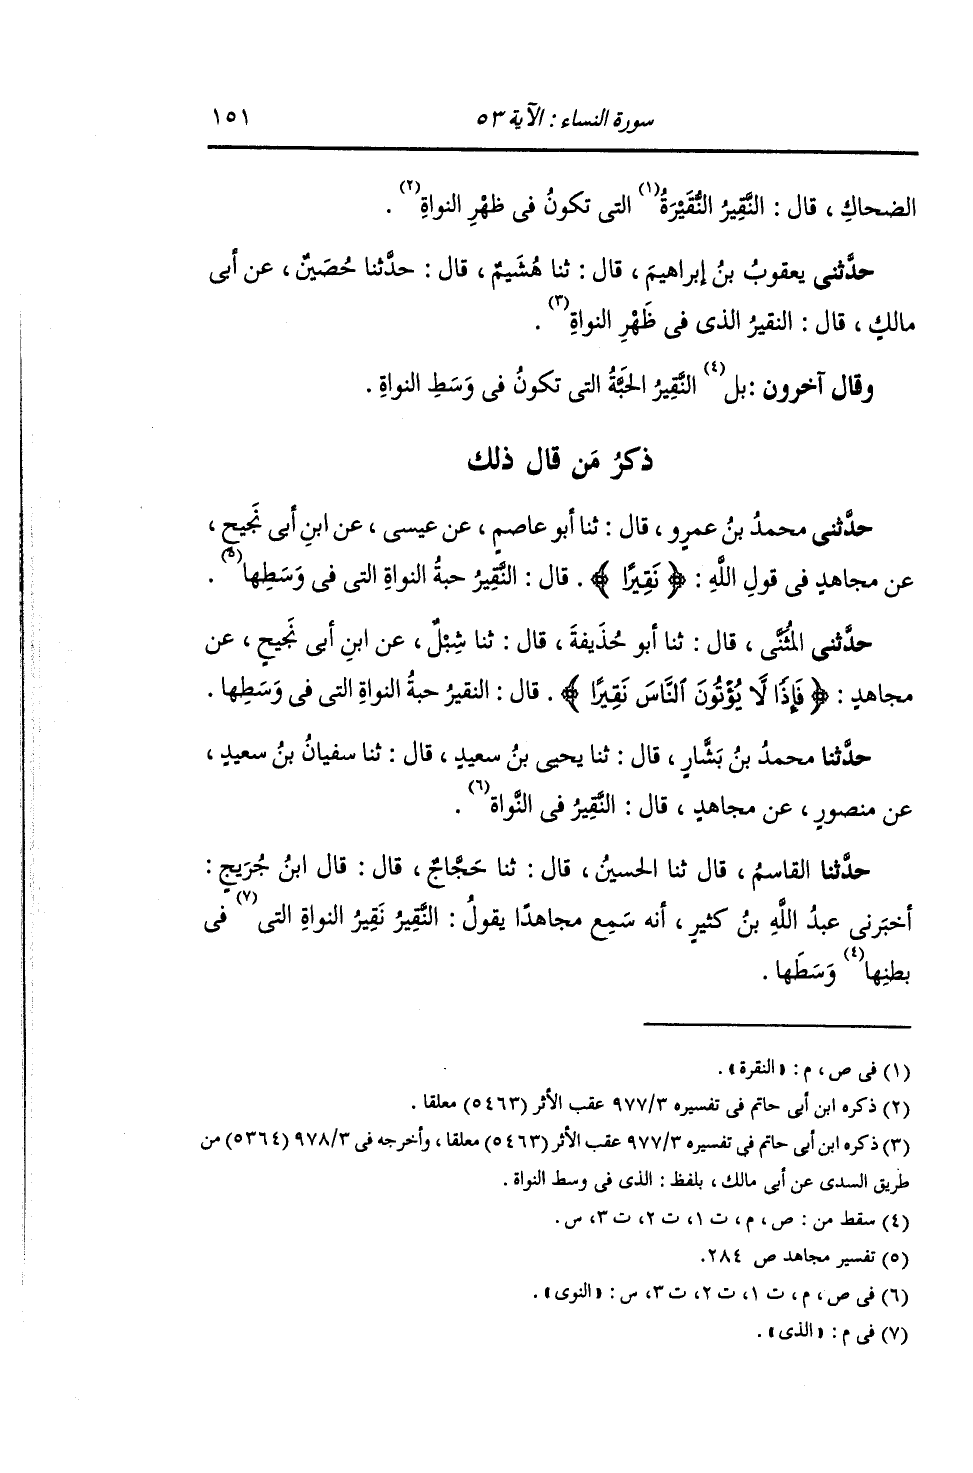 سورة النساء : الآية ٥٣ ١٥١
الضحاكِ ، قال : النَّقِيرُ النُّقَيْرَةُ(١) التى تكونُ فى ظهْرِ النواةِ(٢) .
حدَّثنى يعقوبُ بنُ إبراهيمَ ، قال : ثنا هُشَيمٌ ، قال : حدَّثنا حُصَينٌ ، عن أبى
مالكٍ ، قال : النقيرُ الذى فى ظَهْرِ النواةِ(٣) .
وقال آخرون : بل(٤) النَّقِيرُ الحَبَّةُ التى تكونُ فى وَسَطِ النواةِ .
ذكرُ مَن قال ذلك
حدَّثنى محمدُ بنُ عمرٍو ، قال : ثنا أبو عاصمٍ ، عن عيسى ، عن ابنِ أبى نَجيحٍ ،
عن مجاهدٍ فى قولِ اللَّهِ : ﴿ نَقِيرًا ﴾ . قال : النَّقِيرُ حبةُ النواةِ التى فى وَسَطِها(٥) .
حدَّثنى المُثَنَّى ، قال : ثنا أبو حُذَيفةَ ، قال : ثنا شِبْلٌ ، عن ابنِ أبى نَجيحٍ ، عن
مجاهدٍ : ﴿ فَإِذًا لَّا يُؤْتُونَ ٱلنَّاسَ نَقِيرًا ﴾ . قال : النقيرُ حبةُ النواةِ التى فى وَسَطِها .
حدَّثنا محمدُ بنُ بَشَّارٍ ، قال : ثنا يحيى بنُ سعيدٍ ، قال : ثنا سفيانُ بنُ سعيدٍ ،
عن منصورٍ ، عن مجاهدٍ ، قال : النَّقِيرُ فى النَّواة(٦) .
حدَّثنا القاسمُ ، قال ثنا الحسينُ ، قال : ثنا حَجَّاجٌ ، قال : قال ابنُ جُرَيجٍ :
أخبَرنى عبدُ اللَّهِ بنُ كثيرٍ ، أنه سَمِع مجاهدًا يقولُ : النَّقِيرُ نَقِيرُ النواةِ التى(٧) فى
بطنِها(٤) وَسَطَها .
(١) فى ص ، م : «النقرة» .
(٢) ذكره ابن أبى حاتم فى تفسيره ٩٧٧/٣ عقب الأثر (٥٤٦٣) معلقا .
(٣) ذكره ابن أبى حاتم فى تفسيره ٩٧٧/٣ عقب الأثر (٥٤٦٣) معلقا ، وأخرجه فى ٩٧٨/٣ (٥٣٦٤) من
طريق السدى عن أبى مالك ، بلفظ : الذى فى وسط النواة .
(٤) سقط من : ص ، م ، ت ١، ت ٢، ت ٣، س .
(٥) تفسير مجاهد ص ٢٨٤.
(٦) فى ص ، م ، ت ١، ت ٢، ت ٣، س : «النوى» .
(٧) فى م : «الذى» .